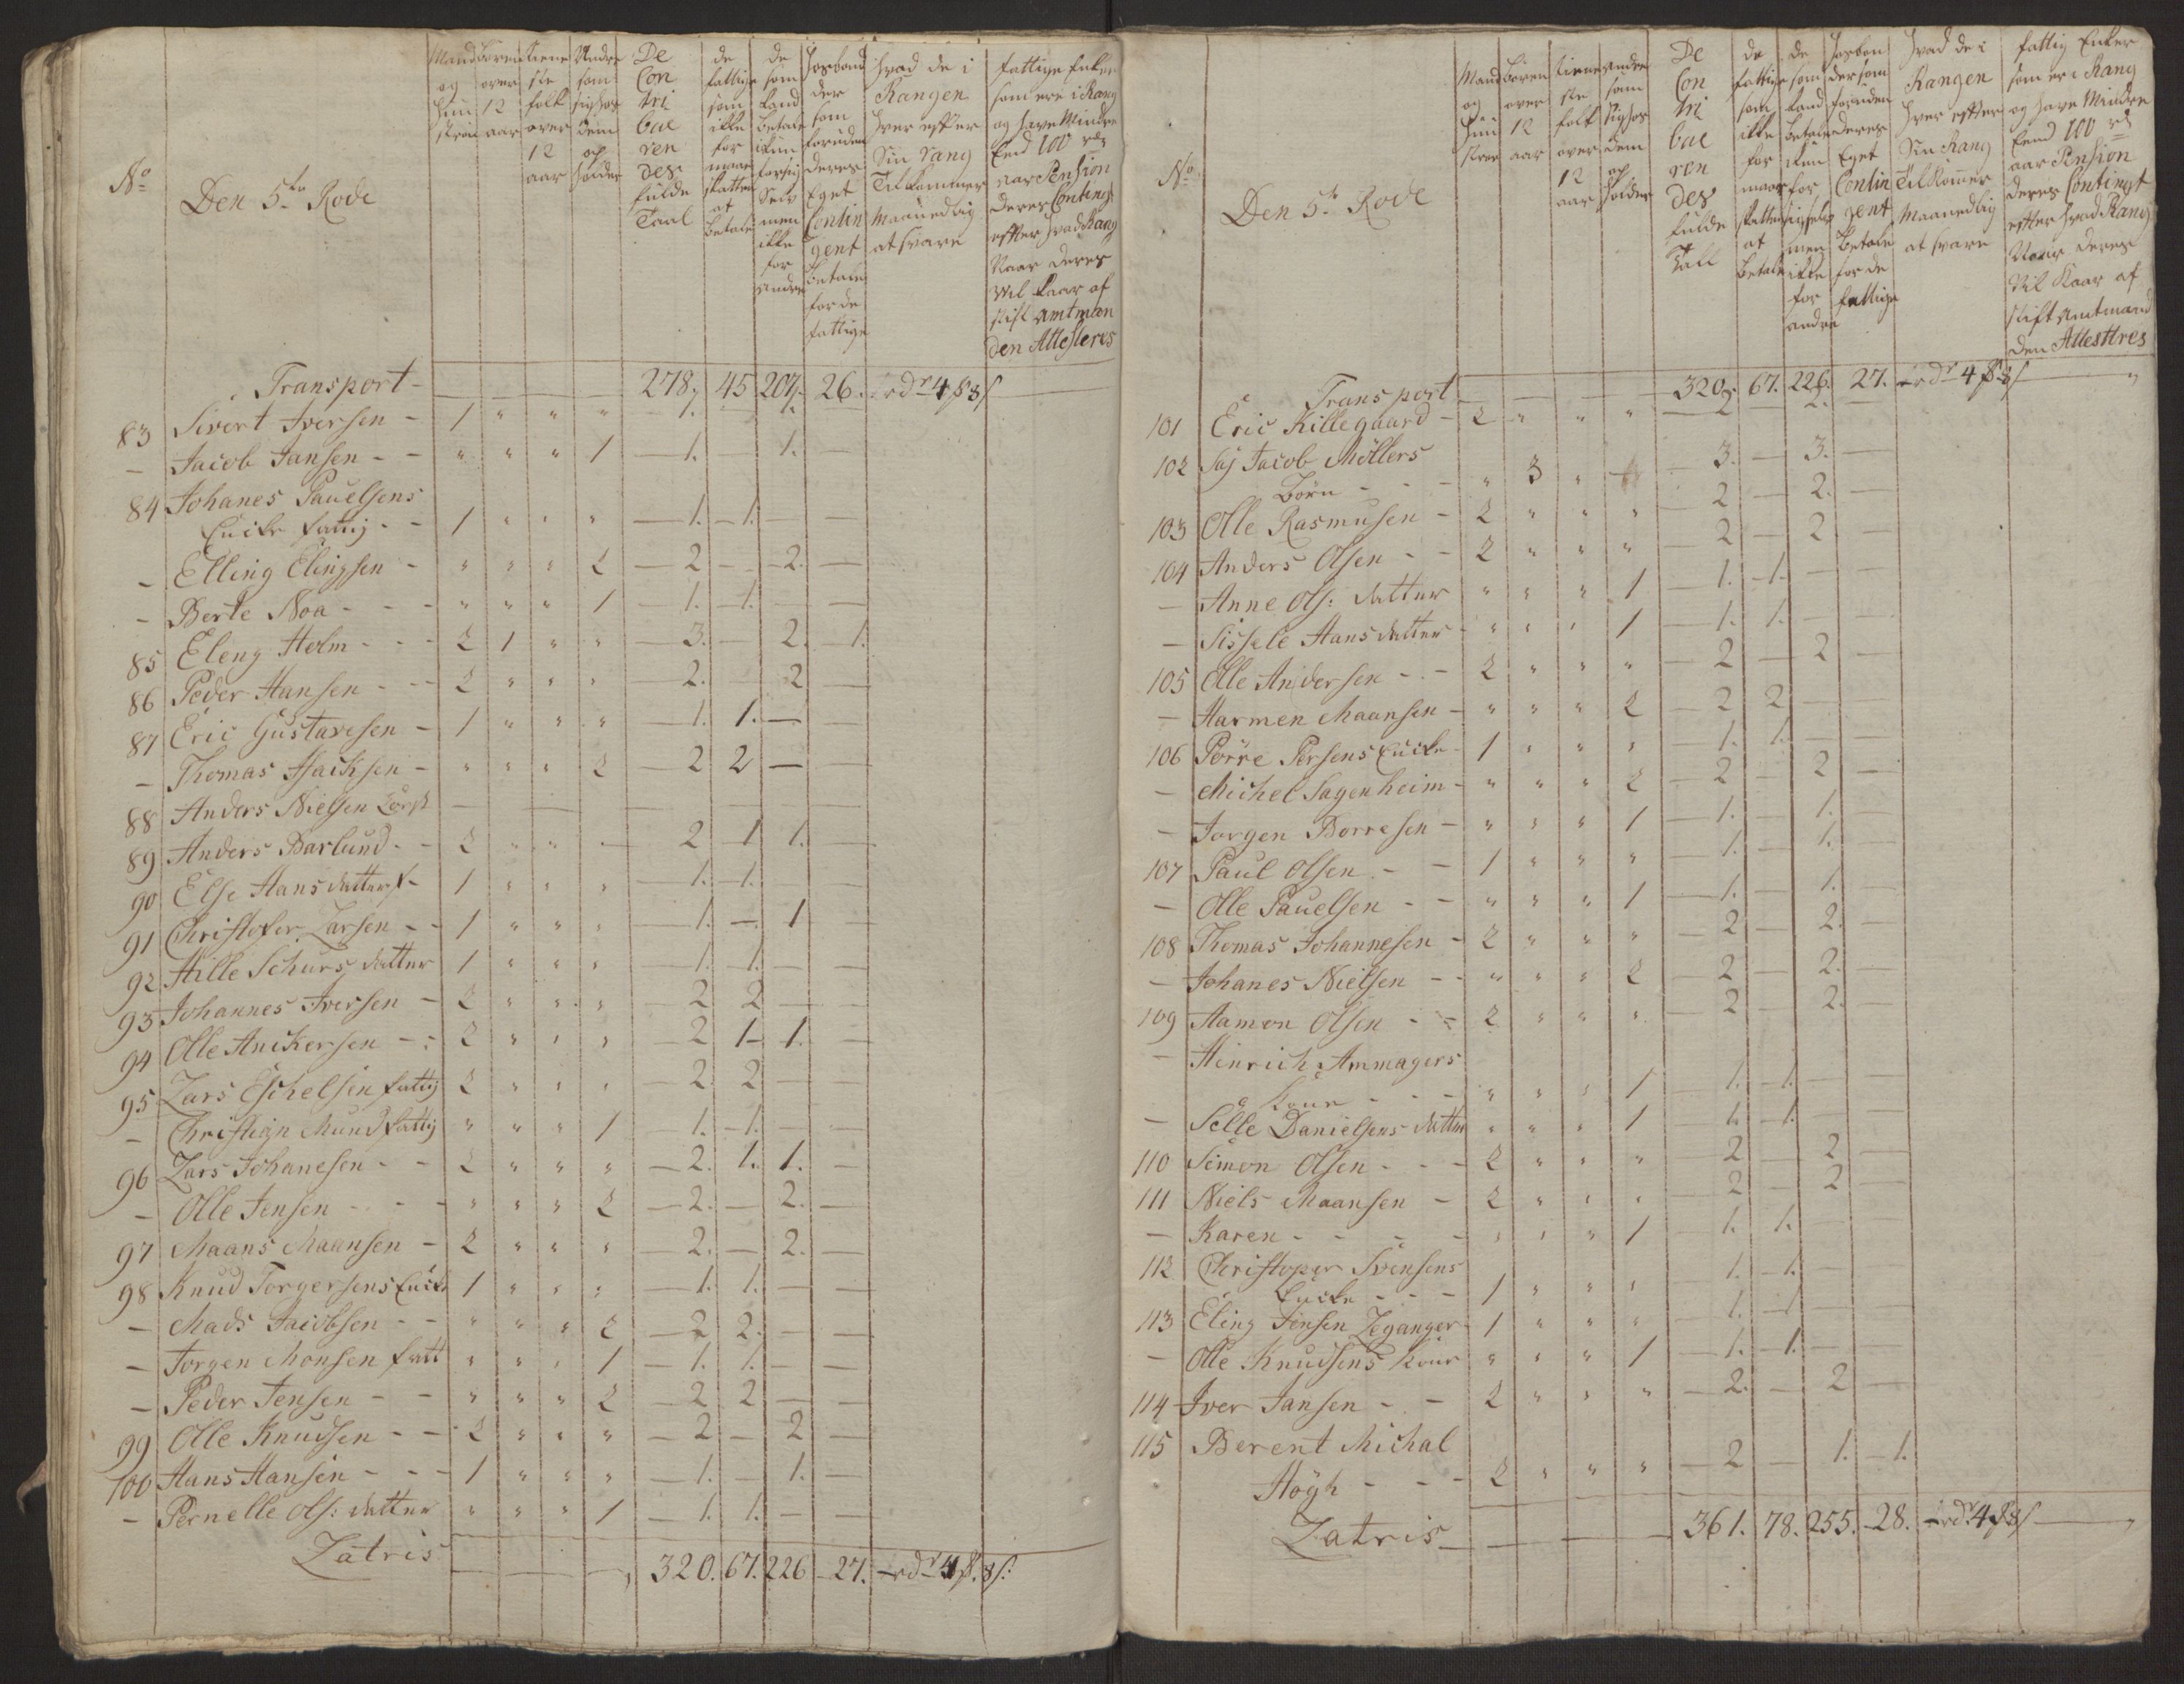 No
Den 5te Rode
Mand og Hun strou
Børen over 12 aar
tiene ste folk over 12 aar
Andre som sig hos dem op holder
De Con tri bue ren des fulde Taal
de fattige som ikke for maar skatten at betale
de som kand betale kun for sig Selv men ikke for Andre
Hosbond der som foruden deres Eget Contin gent betale for de fattige
hvad de i Rangen hver efter Sin rang Tilkommer Maanedlig at svare
fattige Enker som ere i Rang og have Mindre End 100 rd aar Pension deres Contingt efter hvad Rang Naar deres vil kaar af stift amtman den Attesteres
Transport - 278. 45 207. 26. rdr 4 β 8 /
83 Sivert Iversen - 1 " " " - 1. - 1.
- Jacob Jansen - - " " " 1 - 1. - 1. -
84 Johanes Pauelsens
Encke fattig - - 1 " " " - 1. - 1. - -
- Elling Elingsen - " " " 2 - 2 - 2. -
- Berte Noa - - - " " " 1 - 1. - 1. - -
85 Eleng Holm - - - 2 1 " " - 3. - 2. - 1.
86 Peder Hansen - - - 2 " " " - 2. - 2 -
87 Eric Gustavesen - 1 " " " - 1. 1. - -
- Thomas Isacksen - " " " 2 - 2 2 - -
88 Anders Nielsen - - - -
89 Anders Barlund - - 2 " " - 2 1 1. -
90 Else Hans datter f - 1 " " " - 1. - 1. -
91 Christofer Larsen - - 1 " " " - 1. - 1 -
92 Hille Schurs datter 1 " " " 1. - 1. - -
93 Johannes Iversen - 2 " " " - 2 2 - -
94 Olle Anckersen - 2 " " " - 2 1 - 1. -
95 Lars Eschelsen fattig 2 " " " - 2 2 -
- Christign Mund fattig " " " 1 - 1. - 1. - -
96 Lars Johanesen - - 2 " " " - 2. 1. 1. -
- Olle Jensen - - - " " " 2 - 2. - 2. -
97 Maans Maansen - 2 " " " - 2. - 2. -
98 Knud Torgersens Encke 1 " " " - 1. - 1. - -
- Mads Jacobsen - - " " " 2 - 2 2. - -
- Jorgen Monsen fatt " " " 1 - 1. 1. - -
- Peder Jensen - - " " " 2 - 2 2 - -
99 Olle Knudsen - - 2 " " " - 2 - 2 -
100 Hans Hansen - - - 1 " " " - 1. - 1. -
- Pernelle Ols: datter " " " 1 - 1. 1. - -
Latris 320. 67. 226 - 27. - rdr 4 β. 8 /:
No
Den 5te Rode
Mand og Hun strou
Børen over 12 aar
tiene ste folk over 12 aar
Andre som sig hos dem op holder
De Con tri bue ren des fulde Tall
de fattige som ikke for maar skatten at betale
de som kand betale kun for sig selv men ikke for andre
Hosbon der som foruden deres Eget Contin gent betale for de fattige
hvad de i Rangen hver efter Sin Rang Tilkomer Maanedlig at svare
fattig Enker som er i Rang og have Mindre End 100 rd aar Pension deres Contingt efter hvad Rang Naar deres vil Kaar af stift amtmand den Attesttres
Transport - 320. 67. 226. 27. - rdr 4 β 8 / "
101 Eric Killegaard - 2 " " " - 2 - 2. -
102 Sag Jacob Möllers
Börn - - - " 3 " - 3. - 3. -
103 Olle Rasmusen - 2 " " " 2 - 2. -
104 Anders Olsen - - 2 " " " - 2 - 2 -
- Anne Ols: datter " " " 1 - 1. - 1. - -
- Sissele Hans datter " " " 1 - 1. 1. - -
105 Olle Andersen - - 2 " " " - 2 - 2 -
- Harmen Maansen - " " " 2 - 2 2 -
106 Porre Persens Encke - 1 " " " - 1. 1. - -
- Michel Sagenheim - " " " 2 - 2 - 2 -
- Jorgen Borresen - " " " 1 - 1. - 1. -
107 Paul Olsen - - 1 " " " - 1. - 1. -
- Olle Pauelsen - - " " " 1 - 1. - 1. -
108 Thomas Johannesen - 2 " " " - 2 - 2. -
- Johanes Nielsen - - " " " 2 - 2 - 2. -
109 Hamon Olsen - - 2 " " " - 2 - 2. -
- Hinrich Ammagers
Kone - - - " " " 1 - 1. - 1. - -
- Selle Danielsens datter " " " 1 1. - 1. -
110 Simon Olsen - - - 2 " " " - 2 - 2 -
111 Niels Maansen - 2 " " " - 2 - 2 -
- Karen - - - - " " " 1 - 1. 1. -
112 Christoper Svensens
Encke - - - 1 " " " 1. - 1. -
113 Eling Jensen Leganger - 1 " " " - 1. - 1
- Olle Knudsens Kone " " " 1 - 1. - 1. -
114 Iver Jansen - - 2 " " " - 2. - 2 -
115 Berent Michal
Högh - - - 2 " " " - 2 - 1. - 1.
Latris - 361. 78. 255. - 28. - rdr 4 β 8 / - "